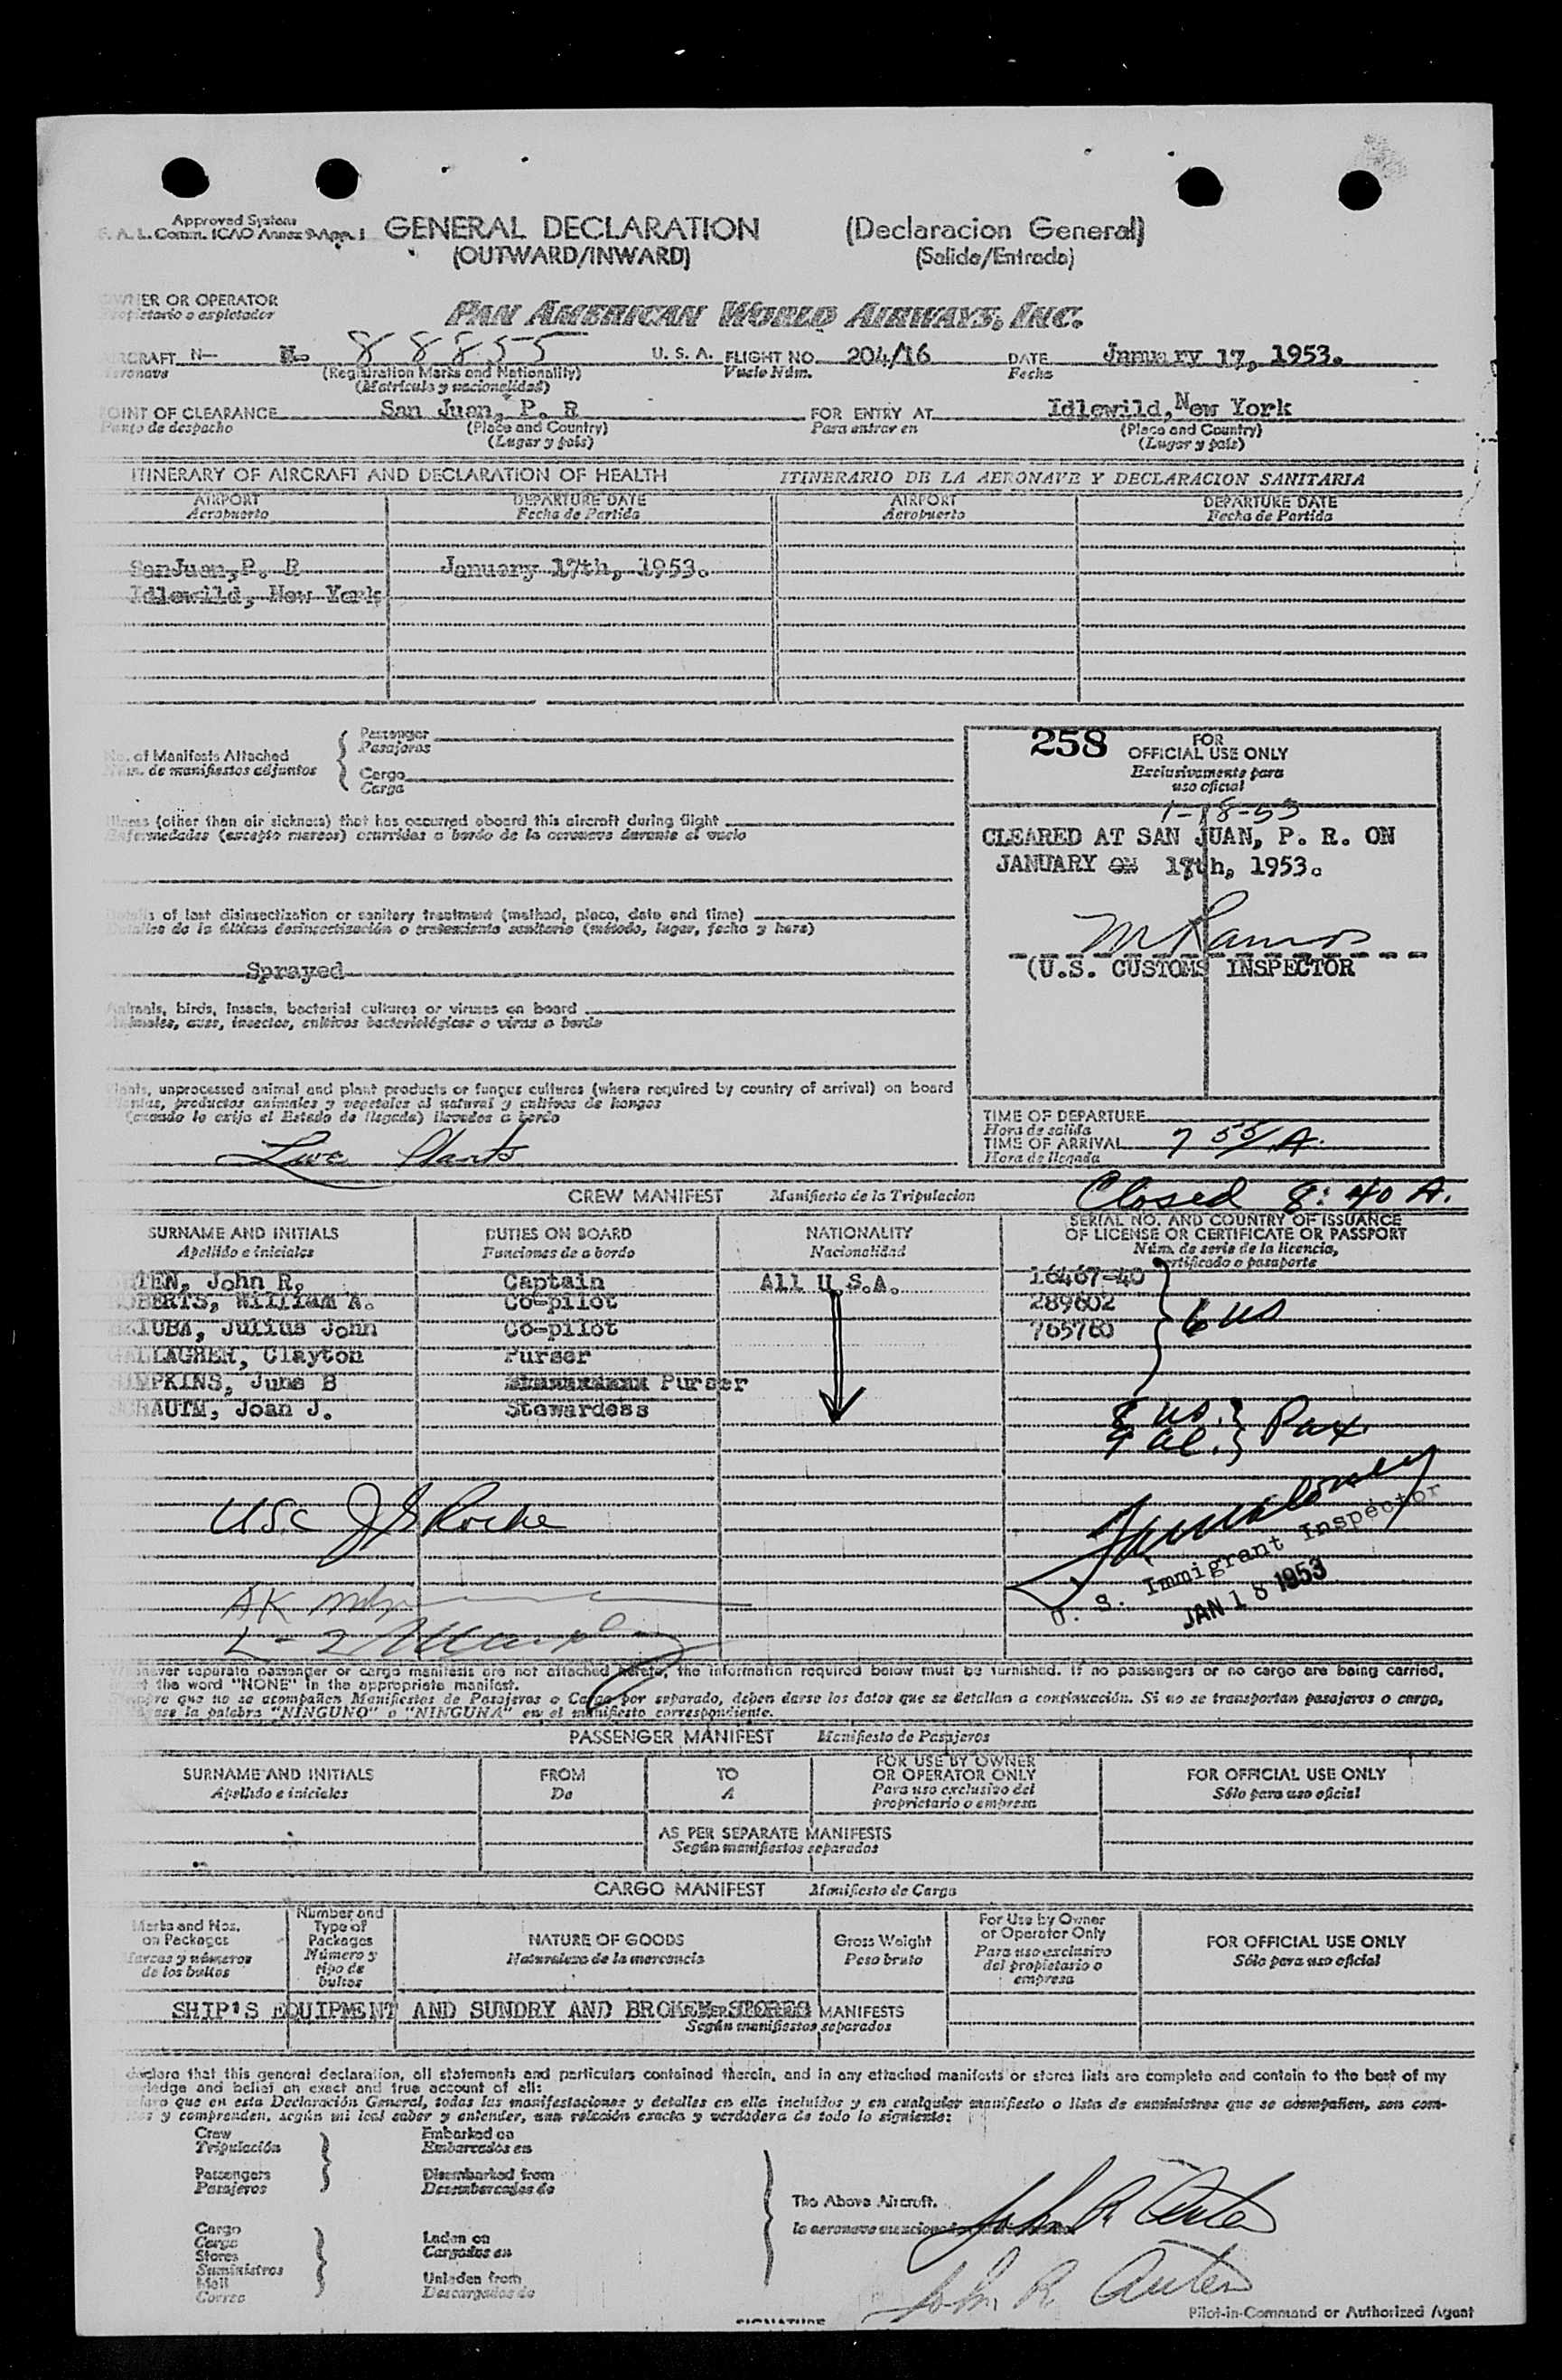 Approved Systems
F. A. L. Comm. ICAO Annex 9-App. I
GENERAL DECLARATION (Declaracion General)
(OUTWARD/INWARD) (Salida/Entrada)
OWNER OR OPERATOR
Propietario o espletador
PAN AMERICAN WORLD AIRWAYS, INC.
AIRCRAFT N— N. 88855 U. S. A. FLIGHT NO. 204/16 DATE January 17, 1953.
Aeronave (Registration Marks and Nationality) Vuelo Núm. Fecha
(Matricula y nacionalidad)
POINT OF CLEARANCE San Juan, P. R FOR ENTRY AT Idlewild, New York
Punto de despacho (Place and Country) Para entrar en (Place and Country)
(Lugar y país) (Lugar y país)
ITINERARY OF AIRCRAFT AND DECLARATION OF HEALTH ITINERARIO DE LA AERONAVE Y DECLARACION SANITARIA
AIRPORT DEPARTURE DATE AIRPORT DEPARTURE DATE
Aeropuerto Fecha de Partida Aeropuerto Fecha de Partida
SanJuan,P. R January 17th, 1953.
Idlewild, New York
No. of Manifests Attached
Núm. de manifiestos adjuntos
Passenger
Pasajeros
Cargo
Carga
258 FOR
OFFICIAL USE ONLY
Exclusivamente para
uso oficial
1-18-53
CLEARED AT SAN JUAN, P. R. ON
JANUARY ON 17th, 1953.
M Ramos
(U.S. CUSTOMS INSPECTOR
Illness (other than air sickness) that has occurred aboard this aircraft during flight
Enfermedades (excepto mareos) ocurridas a bordo de la aeronave durante el vuelo
Details of last disinsectization or sanitary treatment (method, place, date and time)
Detalles de la última desinsectización o tratamiento sanitario (método, lugar, fecha y hora)
Sprayed
Animals, birds, insects, bacterial cultures or viruses on board
Animales, aves, insectos, cultivos bacteriológicos o virus a bordo
Plants, unprocessed animal and plant products or fungus cultures (where required by country of arrival) on board
Plantas, productos animales y vegetales al natural y cultivos de hongos
(cuando lo exija el Estado de llegada) llevados a bordo
Live Plants
TIME OF DEPARTURE
Hora de salida
TIME OF ARRIVAL 7 55/A.
Hora de llegada
CREW MANIFEST Manifiesto de la Tripulacion Closed 8:40 A.
SURNAME AND INITIALS DUTIES ON BOARD NATIONALITY SERIAL NO. AND COUNTRY OF ISSUANCE
OF LICENSE OR CERTIFICATE OR PASSPORT
Apellido e iniciales Funciones de a bordo Nacionalidad Núm. de serie de la licencia,
certificado o pasaporte
UTEN, John R. Captain All U.S.A. 16467-40
ROBERTS, William A. Co-pilot 289602
IUBA, Julius John Co-pilot 765760
6 US
GALLAGHER, Clayton Purser
MPKINS, June B Purser
RAUIM, Joan J. Stewardess
8 US.
9 al. Pax
USC J Roche
U. S. Immigrant Inspector
JAN 18 1953
AK
L-2
Whenever separate passenger or cargo manifests are not attached hereto, the information required below must be furnished. If no passengers or no cargo are being carried,
the word "NONE" in the appropriate manifest.
Siempre que no se acompañen Manifiestos de Pasajeros o Carga por separado, deben darse los datos que se detallan a continuación. Si no se transportan pasajeros o carga,
ase la palabra "NINGUNO" o "NINGUNA" en el manifiesto correspondiente.
PASSENGER MANIFEST Manifiesto de Pasajeros
SURNAME AND INITIALS FROM TO FOR USE BY OWNER
OR OPERATOR ONLY FOR OFFICIAL USE ONLY
Apellido e iniciales De A Para uso exclusivo del
proprietario o empresa Sólo para uso oficial
AS PER SEPARATE MANIFESTS
Según manifiestos separados
CARGO MANIFEST Manifiesto de Carga
Marks and Nos.
on Packages
Marcas y números
de los bultos
Number and
Type of
Packages
Número y
tipo de
bultos
NATURE OF GOODS
Naturaleza de la mercancia
Gross Weight
Peso bruto
For Use by Owner
or Operator Only
Para uso exclusivo
del propietario o
empresa
FOR OFFICIAL USE ONLY
Sólo para uso oficial
SHIP'S EQUIPMENT AND SUNDRY AND BROKEN STORES MANIFESTS
Según manifiestos separados
declare that this general declaration, all statements and particulars contained therein, and in any attached manifests or stores lists are complete and contain to the best of my
knowledge and belief an exact and true account of all:
Declaro que en esta Declaración General, todas las manifestaciones y detalles en ella incluídos y en cualquier manifiesto o lista de suministros que se acompañen, son com-
pletos y comprenden, según mi leal saber y entender, una relación exacta y verdadera de todo lo siguiente:
Crew
Tripulación
Passengers
Pasajeros
Embarked on
Embarcados en
Disembarked from
Desembarcados de
Cargo
Carga
Stores
Suministros
Mail
Correo
Laden on
Cargados en
Unladen from
Descargados de
The Above Aircraft.
la aeronave mencionada
John R Auten
John R Auten
SIGNATURE
Pilot-in-Command or Authorized Agent